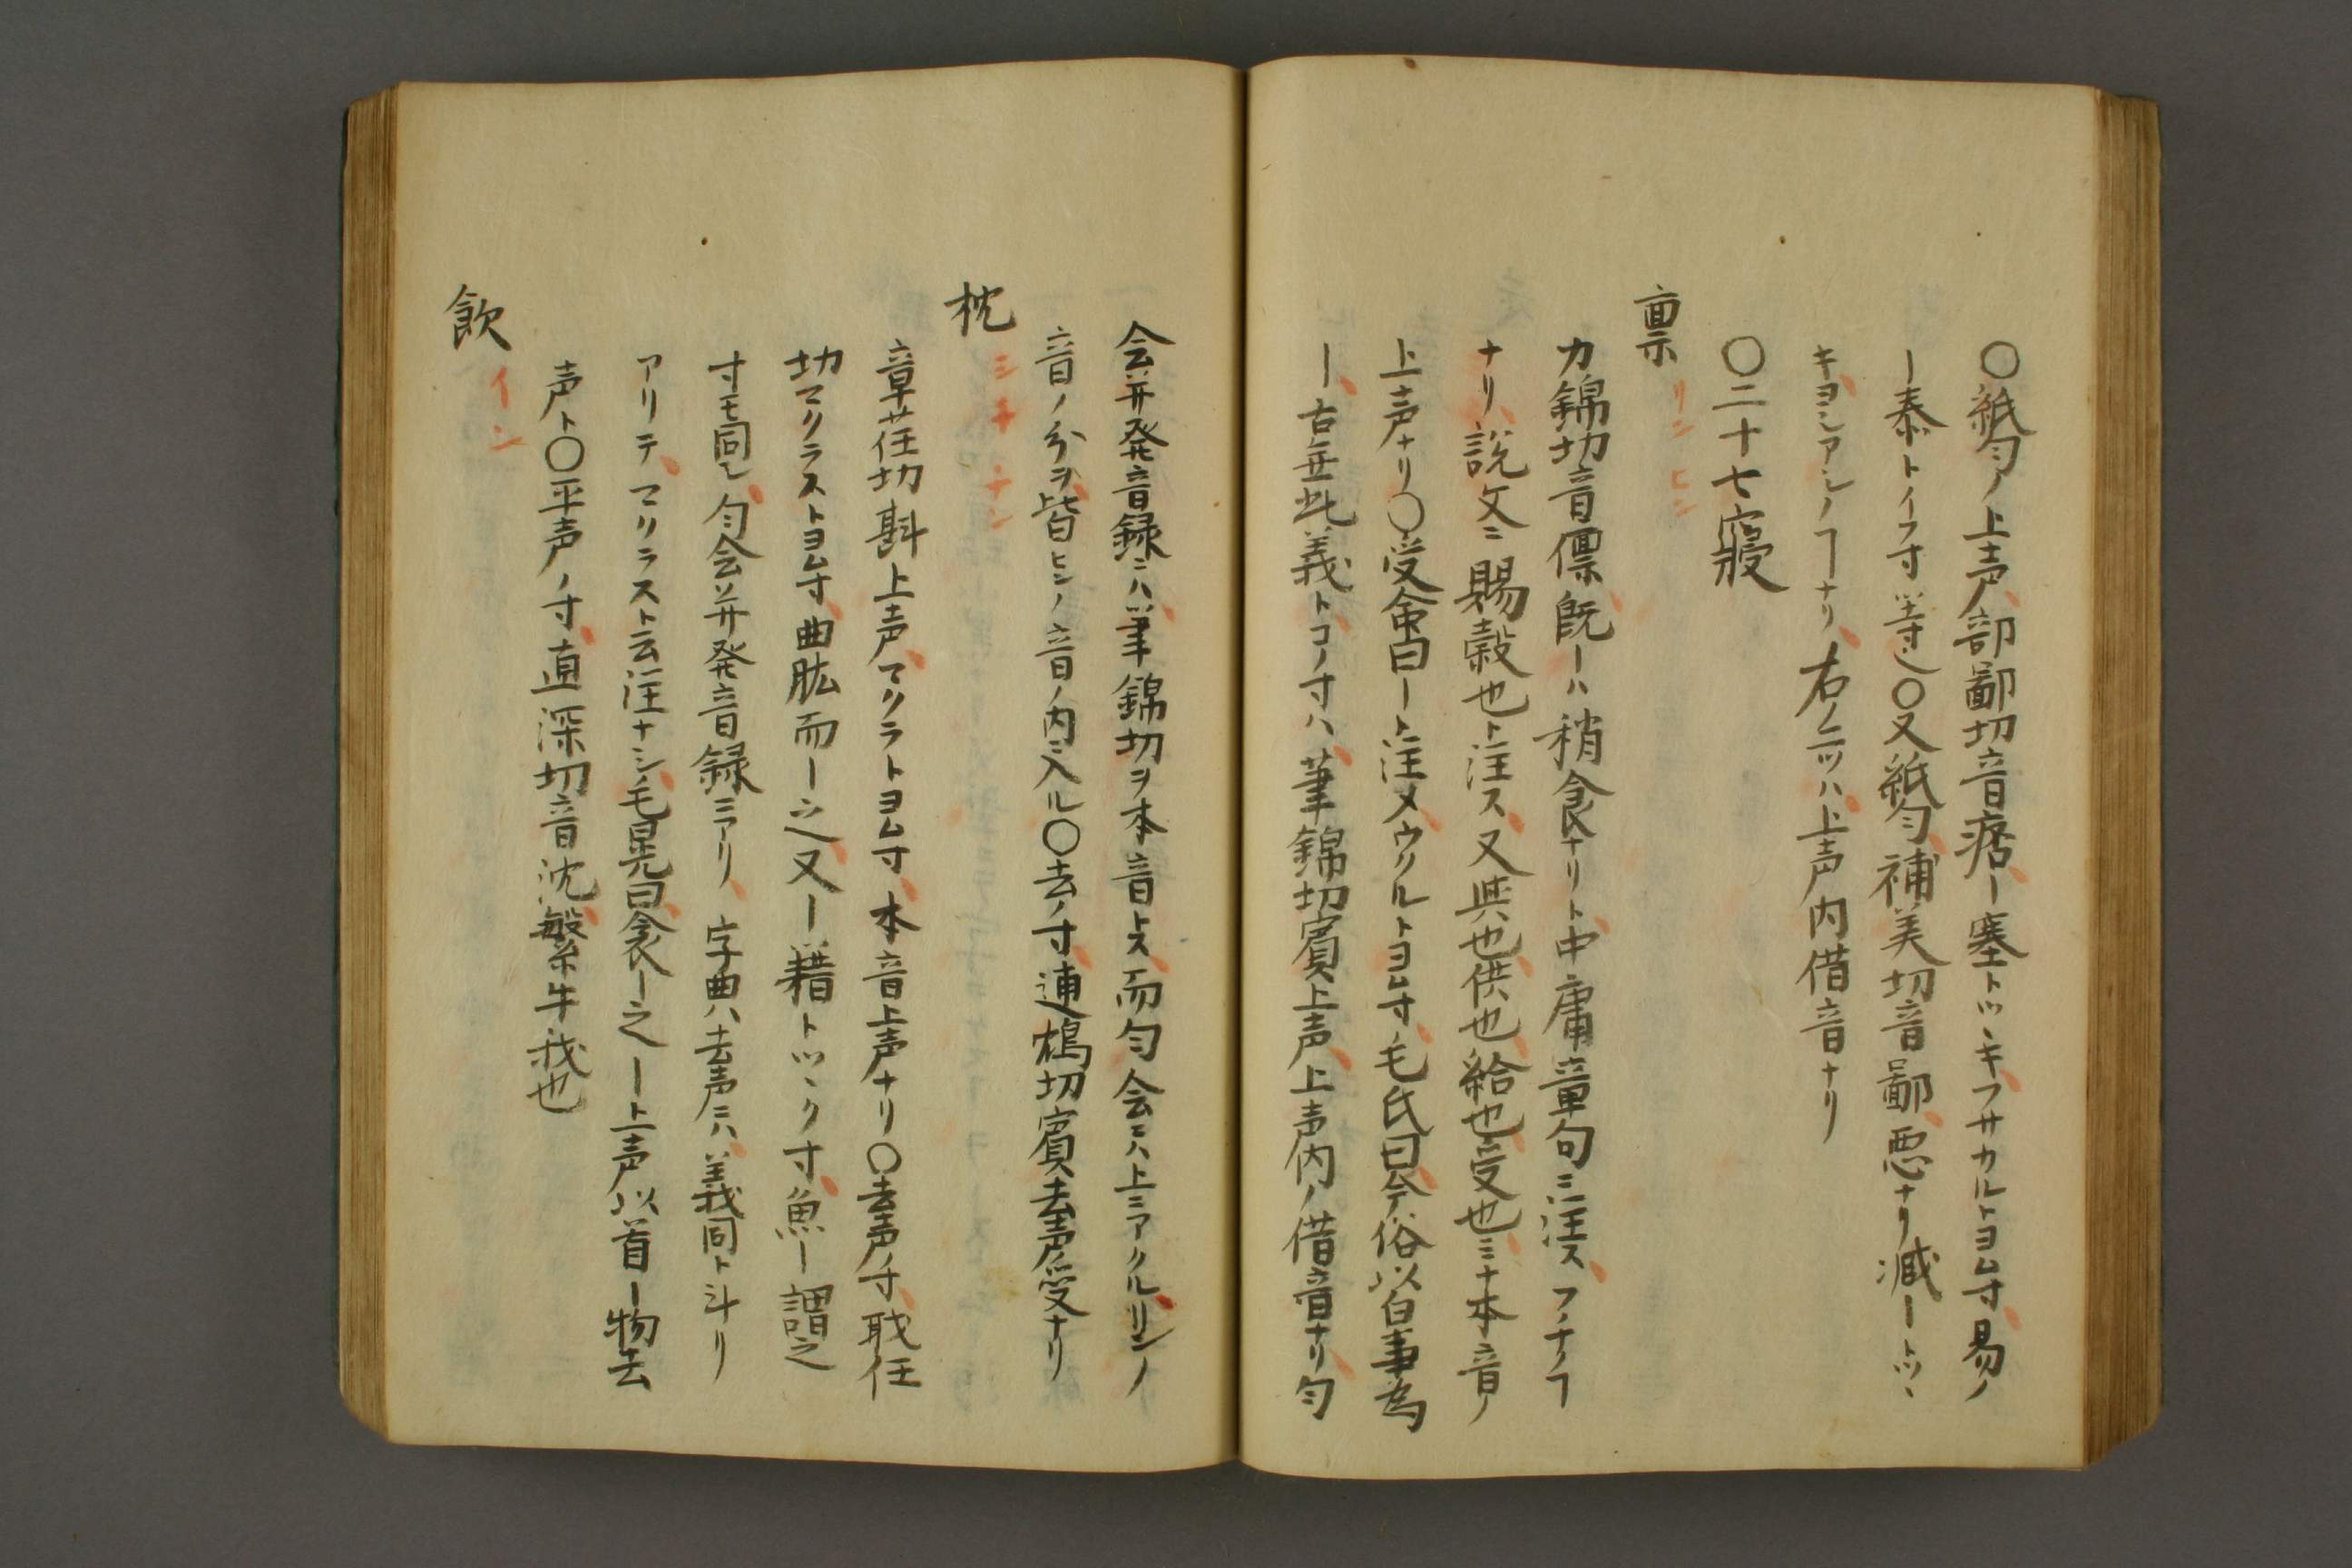 〇紙匀ノ上声部鄙切音痞ー塞トツヽキフサカルトヨム寸易ノ
ー泰トイフ寸等也〇又紙匀補美切音鄙悪ナリ減ートツヽ
キヨシアシノヿナリ右ノ二ツハ上声内借音ナリ
〇二十七寢
稟
リン ヒン
力錦切音懍既ーハ稍食ナリト中庸章句ニ注スフチノヿ
ナリ説文ニ賜穀也ト注ス又與也供也給也受也ミナ本音ノ
上声ナリ〇受命曰ート注メウクルトヨム寸毛氏曰今俗以白事為
ー古無此義トコノ寸ハ筆錦切賓上声上声内ノ借音ナリ匀
会并発音録ニハ筆錦切ヲ本音トス而匀会ニハ上ニアクルリンノ
音ノ分ヲ皆ヒンノ音ノ内ニ入ル〇去ノ寸逋鴆切賓去声受ナリ
枕
シチナン
章荏切斟上声マクラトヨム寸本音上声ナリ〇去声ノ寸職任
切マクラストヨム寸曲肱而ー之又ー藉トツヽク寸魚ー謂之
寸モ同し匀会并発音録ニアリ字典ハ去声ニハ義同ト斗リ
アリテマクラスト云注ナシ毛晃曰衾ー之ート上声以首ー物去
声ト〇平声ノ寸直深切音沈繫牛杙也
飲
イン